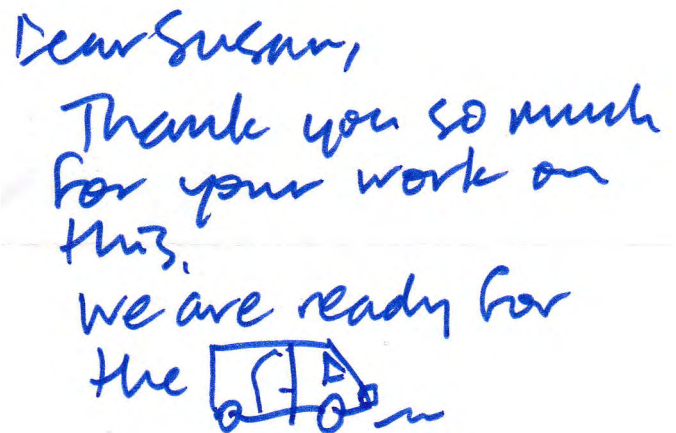 Dear Susan,
Thank you so much
for your work on
this.
We are ready for
the